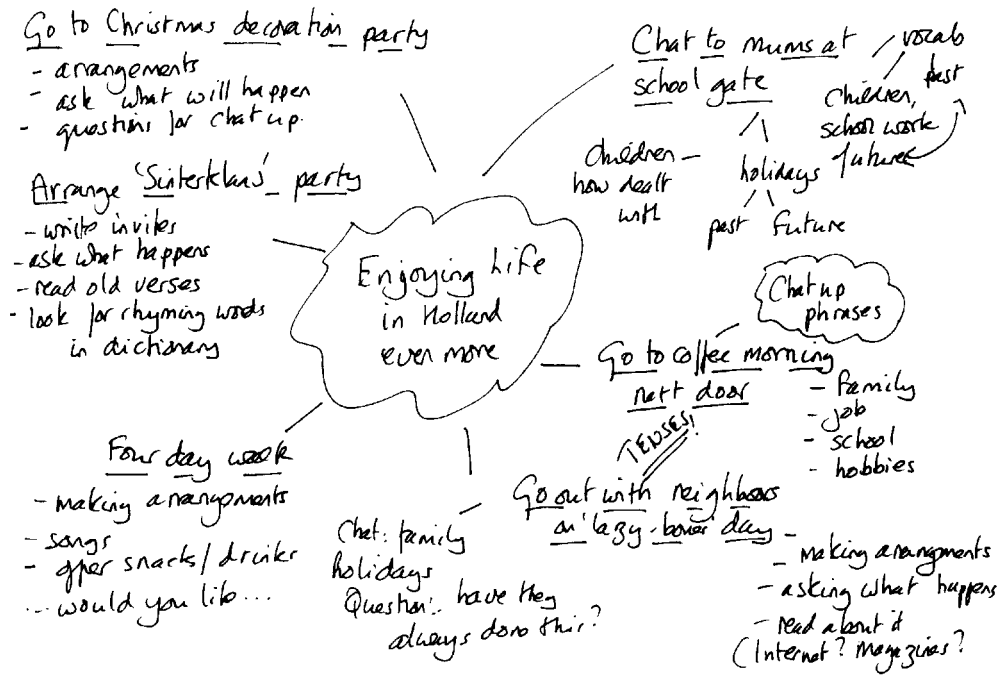 Go to Christmas decoration party
- arrangements
- ask what will happen
- questions for chat up.
Arrange 'Sinterklaas' party
- write invites
- ask what happens
- read old verses
- look for rhyming words
in dictionary
Four day week
- making arrangements
- songs
- offer snacks/drinks
... would you like ...
Enjoying life
in Holland
even more
Chat to mums at
school gate
vocab
past
children,
school work
future
children -
how dealt
with
holidays
past future
Chat up
phrases
Go to coffee morning
next door
- family
- job
- school
- hobbies
TENSES!
Go out with neighbours
on 'lazy-bones' day
- making arrangments
- asking what happens
- read about it
(Internet? Magazines?
Chat: family
holidays
Question:. have they
always done this?